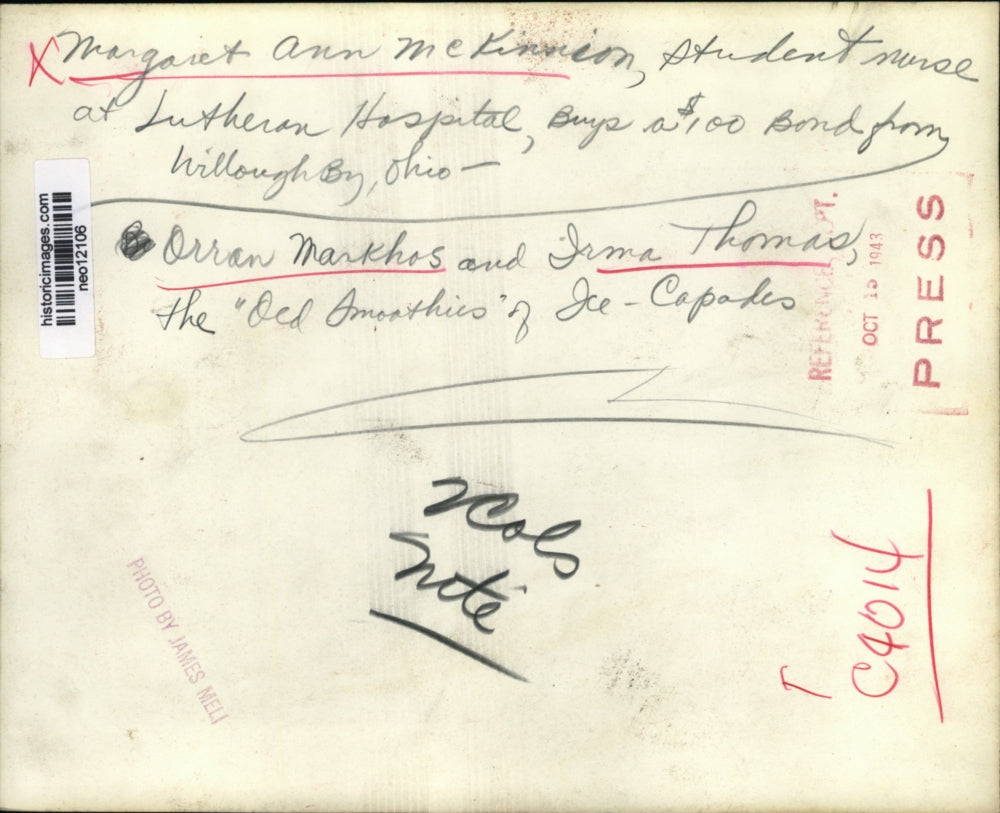 X Margaret Ann McKinnon, student nurse
at Lutheran Hospital, Buys a $100 Bond from
WilloughBy, Ohio —
Orran Markhos and Irma Thomas,
the "Old Smoothies" of Ice-Capades
historicimages.com
neo12106
REFERENCE DEPT.
OCT 15 1943
PRESS
2Cols
nite
PHOTO BY JAMES MELI
T
C4014